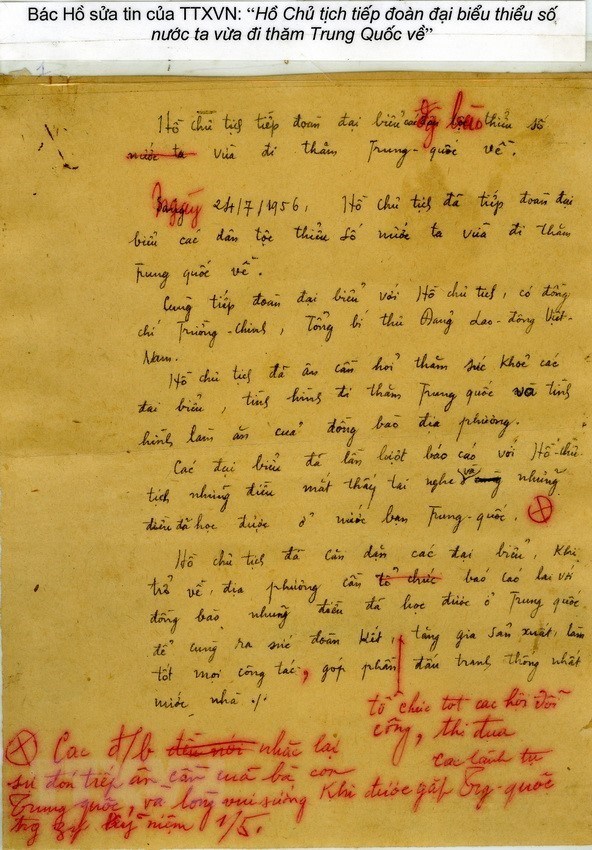 Bác Hồ sửa tin của TTXVN: “Hồ Chủ tịch tiếp đoàn đại biểu thiểu số
nước ta vừa đi thăm Trung Quốc về”
Hồ chủ tịch tiếp đoàn đại biểu đg bào thiểu số
nước ta vừa đi thăm Trung-quốc về.
Ngày 24/7/1956, Hồ chủ tịch đã tiếp đoàn đại
biểu các dân tộc thiểu số nước ta vừa đi thăm
Trung quốc về.
Cùng tiếp đoàn đại biểu với Hồ chủ tịch, có đồng
chí Trường-chinh, Tổng bí thư Đảng Lao-động Việt-
Nam.
Hồ chủ tịch đã ân cần hỏi thăm sức khoẻ các
đại biểu, tình hình đi thăm Trung quốc và tình
hình làm ăn của đồng bào địa phương.
Các đại biểu đã lần lượt báo cáo với Hồ-chủ-
tịch những điều mắt thấy tai nghe và những
điều đã học được ở nước bạn Trung-quốc. ⊗
Hồ chủ tịch đã căn dặn các đại biểu, khi
trở về địa phương cần tổ chức báo cáo lại với
đồng bào những điều đã học được ở Trung quốc
để cùng ra sức đoàn kết, tăng gia sản xuất, làm
tốt mọi công tác, góp phần đấu tranh thống nhất
nước nhà ./.
tổ chức tot các hội đổi
công, thi đua
⊗ Các đ/b đều nói nhắc lại
sự đón tiếp ân cần của bà con
Trung quốc, và lòng vui sướng khi được gặp các lãnh tụ Trg-quốc
trg kỷ niệm 1/5.